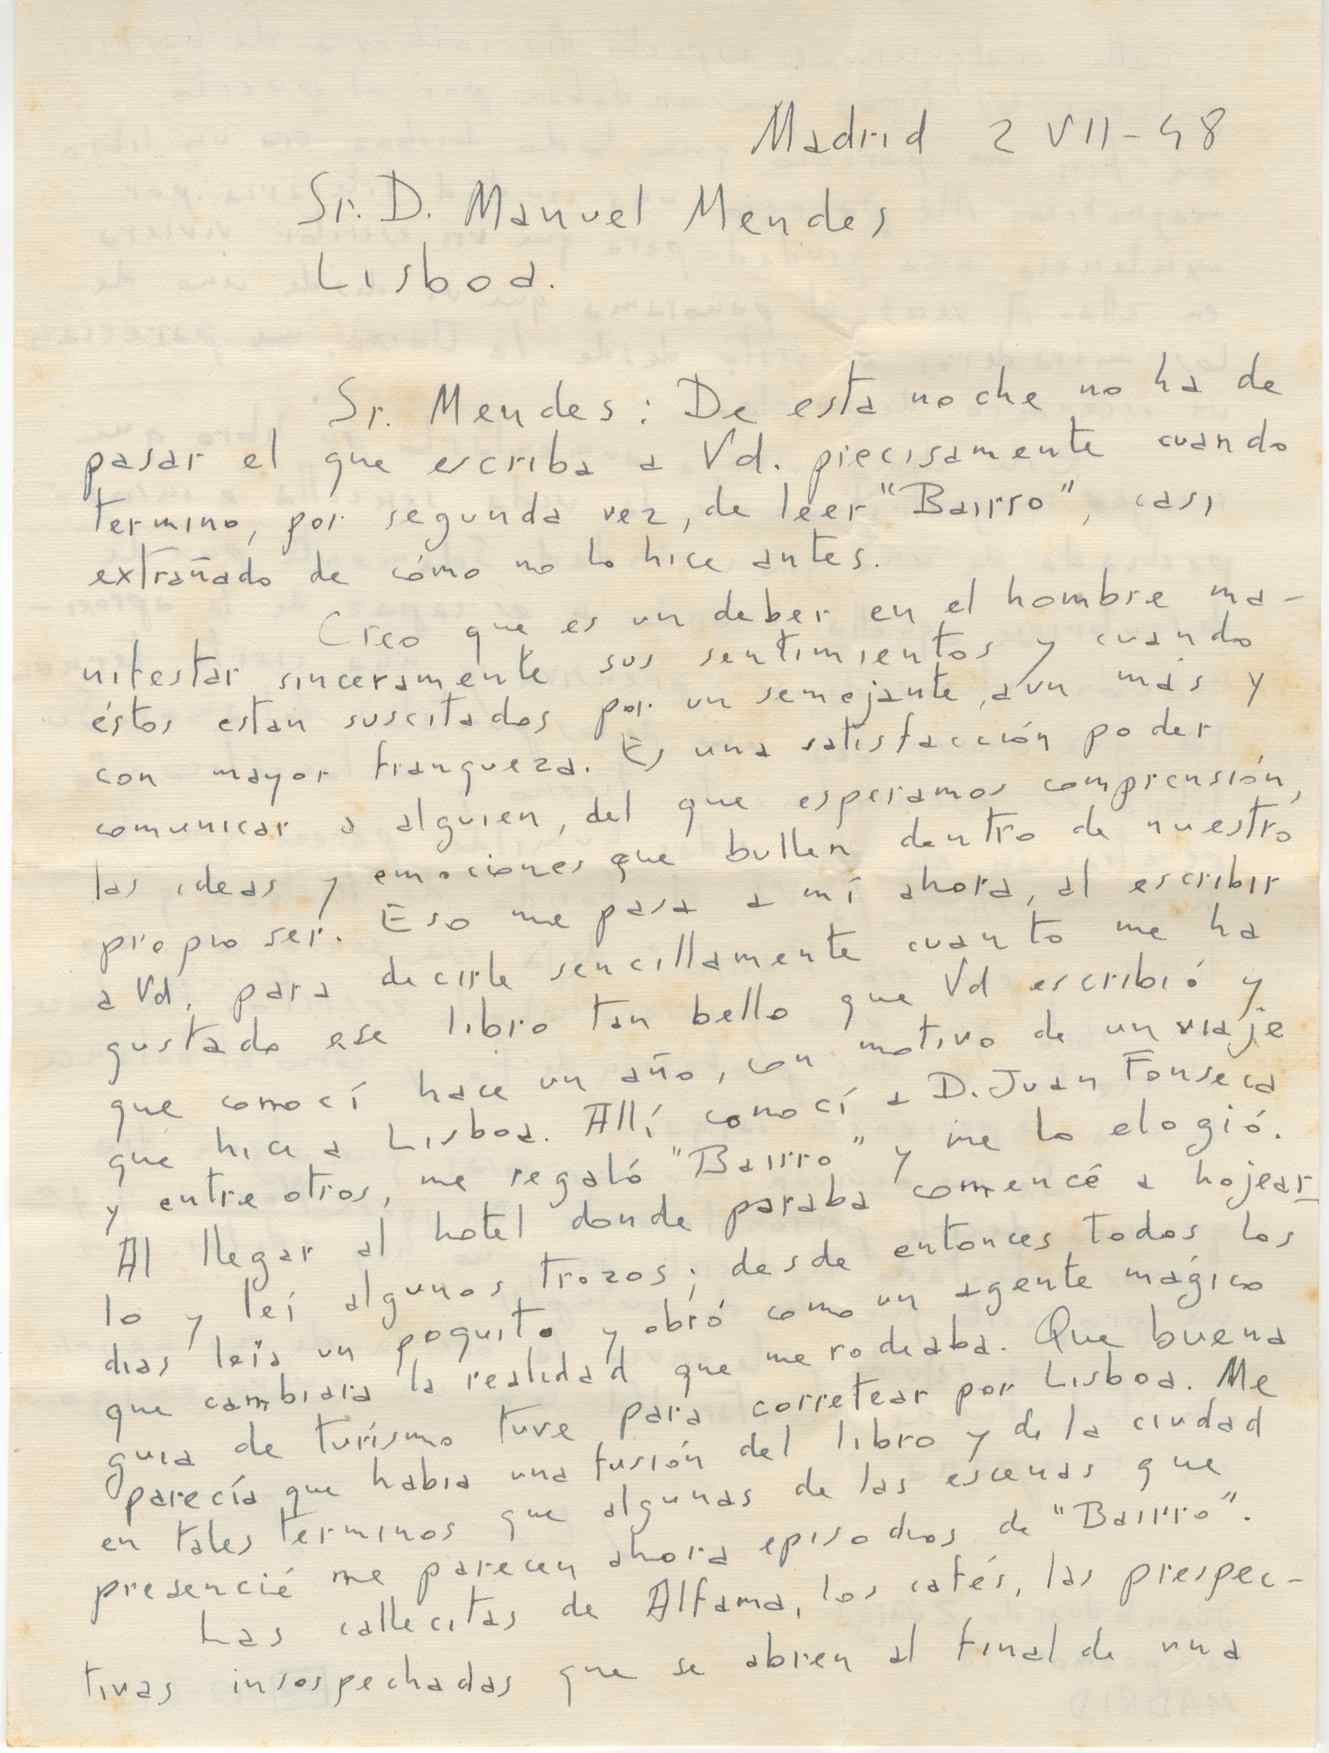 Madrid 2 VII-48
Sr. D. Manuel Mendes
Lisboa.
Sr. Mendes: De esta noche no ha de
pasar el que escriba a Vd. precisamente cuando
termino, por segunda vez, de leer "Bairro", casi
extrañado de cómo no lo hice antes.
Creo que es un deber en el hombre ma-
nifestar sinceramente sus sentimientos y cuando
éstos estan suscitados por un semejante, aun más y
con mayor franqueza. Es una satisfacción poder
comunicar a alguien, del que esperamos comprensión,
las ideas y emociones que bullen dentro de nuestro
propio ser. Eso me pasa a mí ahora, al escribir
a Vd. para decirle sencillamente cuanto me ha
gustado ese libro tan bello que Vd escribió y
que conocí hace un año, con motivo de un viaje
que hice a Lisboa. Allí conocí a D. Juan Fonseca
y entre otros, me regaló "Bairro" y me lo elogió.
Al llegar al hotel donde paraba comencé a hojear-
lo y leí algunos trozos; desde entonces todos los
dias leía un poquito y obró como un agente mágico
que cambiara la realidad que me rodeaba. Que buena
guia de turismo tuve para corretear por Lisboa. Me
parecía que habia una fusión del libro y de la ciudad
en tales terminos que algunas de las escenas que
presencié me parecen ahora episodios de "Bairro".
Las callecitas de Alfama, los cafés, las prespec-
tivas insospechadas que se abren al final de una